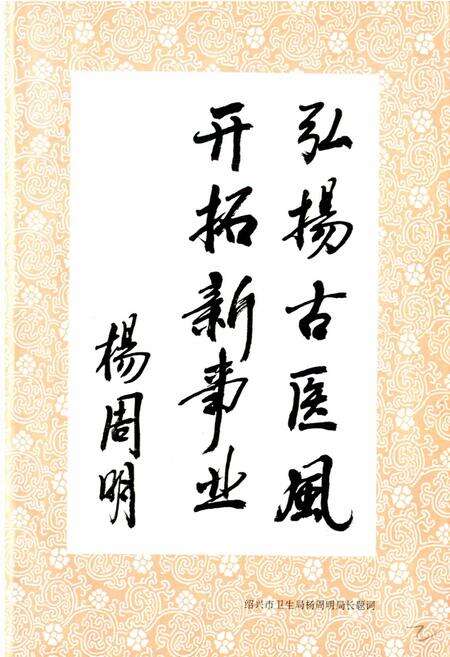 弘揚古医風
开拓新事业
楊周明
绍兴市卫生局杨周明局长题词